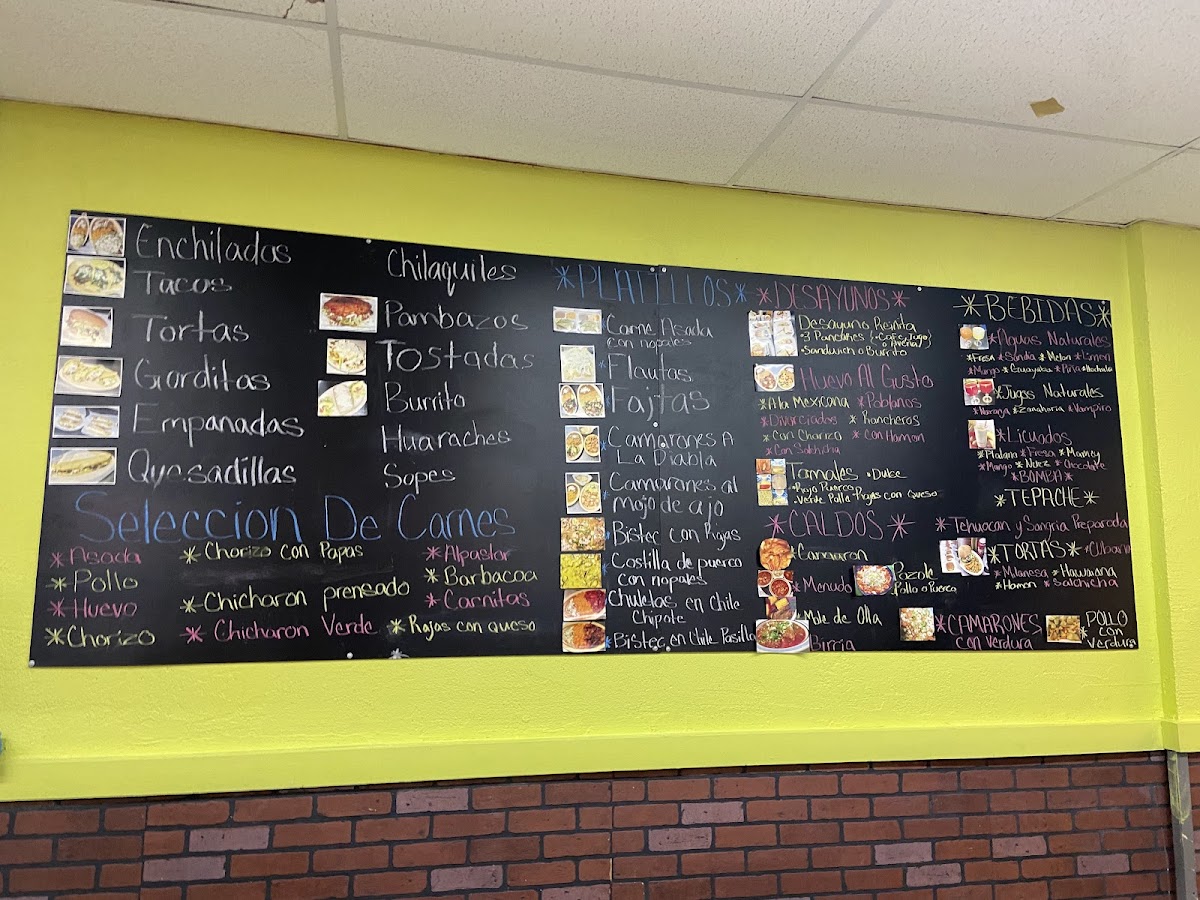 Enchiladas
Tacos
Tortas
Gorditas
Empanadas
Quesadillas
Chilaquiles
Pambazos
Tostadas
Burrito
Huaraches
Sopes
Seleccion De Carnes
*Asada
*Pollo
*Huevo
*Chorizo
*Chorizo con Papas
*Chicharon prensado
*Chicharon Verde
*Alpastor
*Barbacoa
*Carnitas
*Rajas con queso
*PLATILLOS*
Carne Asada
con nopales
*Flautas
*Fajitas
*Camarones A
La Diabla
*Camarones al
mojo de ajo
*Bistec con Rajas
*Costilla de puerco
con nopales
*Chuletas en Chile
Chipote
*Bistec en Chile Pasilla
*DESAYUNOS*
Desayuno Reinita
*3 Pancakes (*Cafe, Jugo
o Avena)
*Sandwich o Burrito
*Huevo Al Gusto
*A la Mexicana *Poblanos
*Divorciados *Rancheros
*Con Chorizo *Con Hamon
*Con Salchicha
*Tamales *Dulce
*Rojo Puerco
*Verde Pollo *Rajas con Queso
*CALDOS*
*Camaron
*Menudo
*Mole de Olla
*Birria
Pozole
Pollo o Puerco
*BEBIDAS*
*Aguas Naturales
*Fresa *Sandia *Melon *Limon
*Mango *Guayaba *Piña *Horchata
*Jugos Naturales
*Naranja *Zanahoria *Vampiro
*Licuados
*Platano *Fresa *Mamey
*Mango *Nuez *Chocolate
*BOMBA*
*TEPACHE*
*Tehuacan y Sangria Preparada
*TORTAS* *Cubana
*Milanesa *Hawaiana
*Hamon *Salchicha
*CAMARONES
con Verdura
*POLLO
con
Verdura